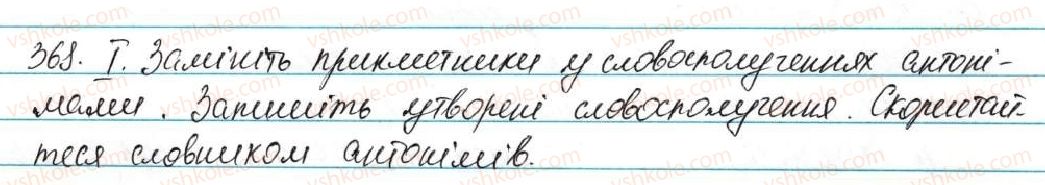 368. I. Замініть прикметники у словосполученнях антоні-
мами. Запишіть утворені словосполучення. Скористай-
теся словником антонімів.